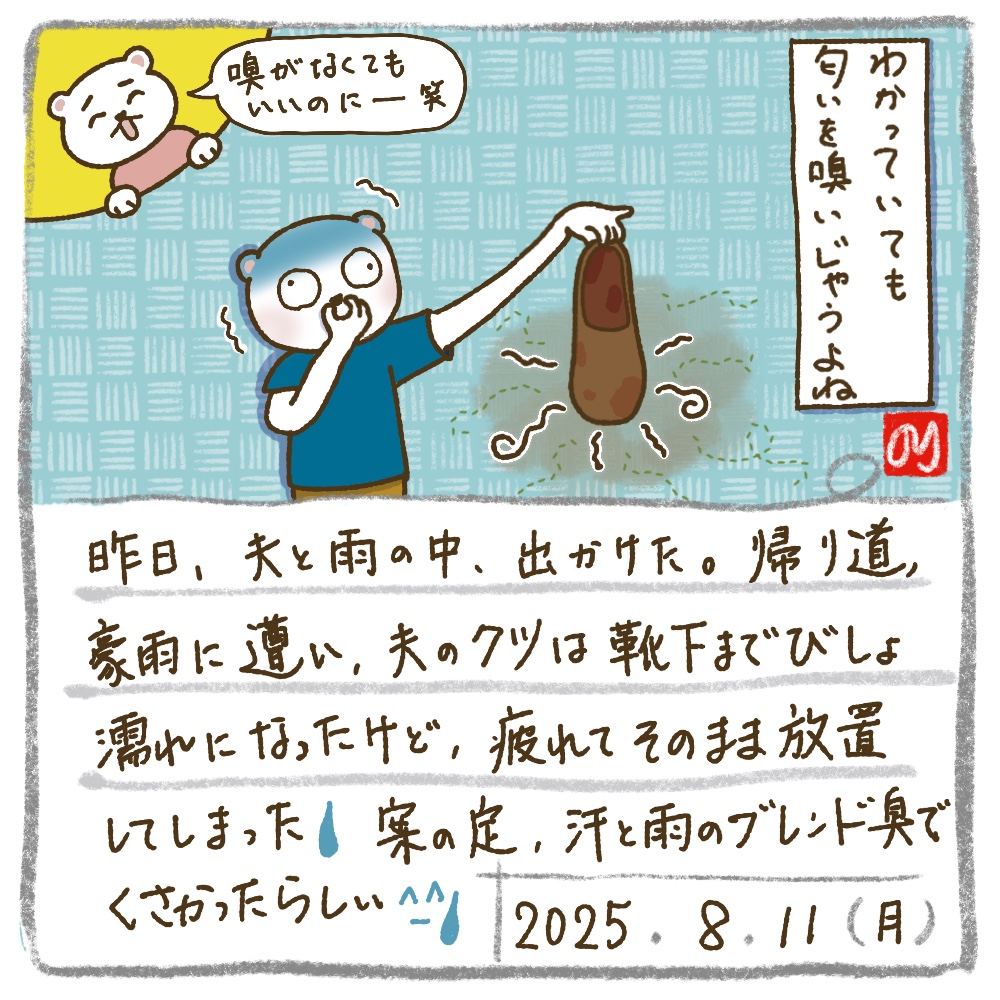 わかっていても
匂いを嗅いじゃうよね
嗅がなくても
いいのにー 笑
のり
昨日、夫と雨の中、出かけた。帰り道、
豪雨に遭い、夫のクツは靴下までびしょ
濡れになったけど、疲れてそのまま放置
してしまった 案の定、汗と雨のブレンド臭で
くさかったらしい^^
2025.8.11(月)